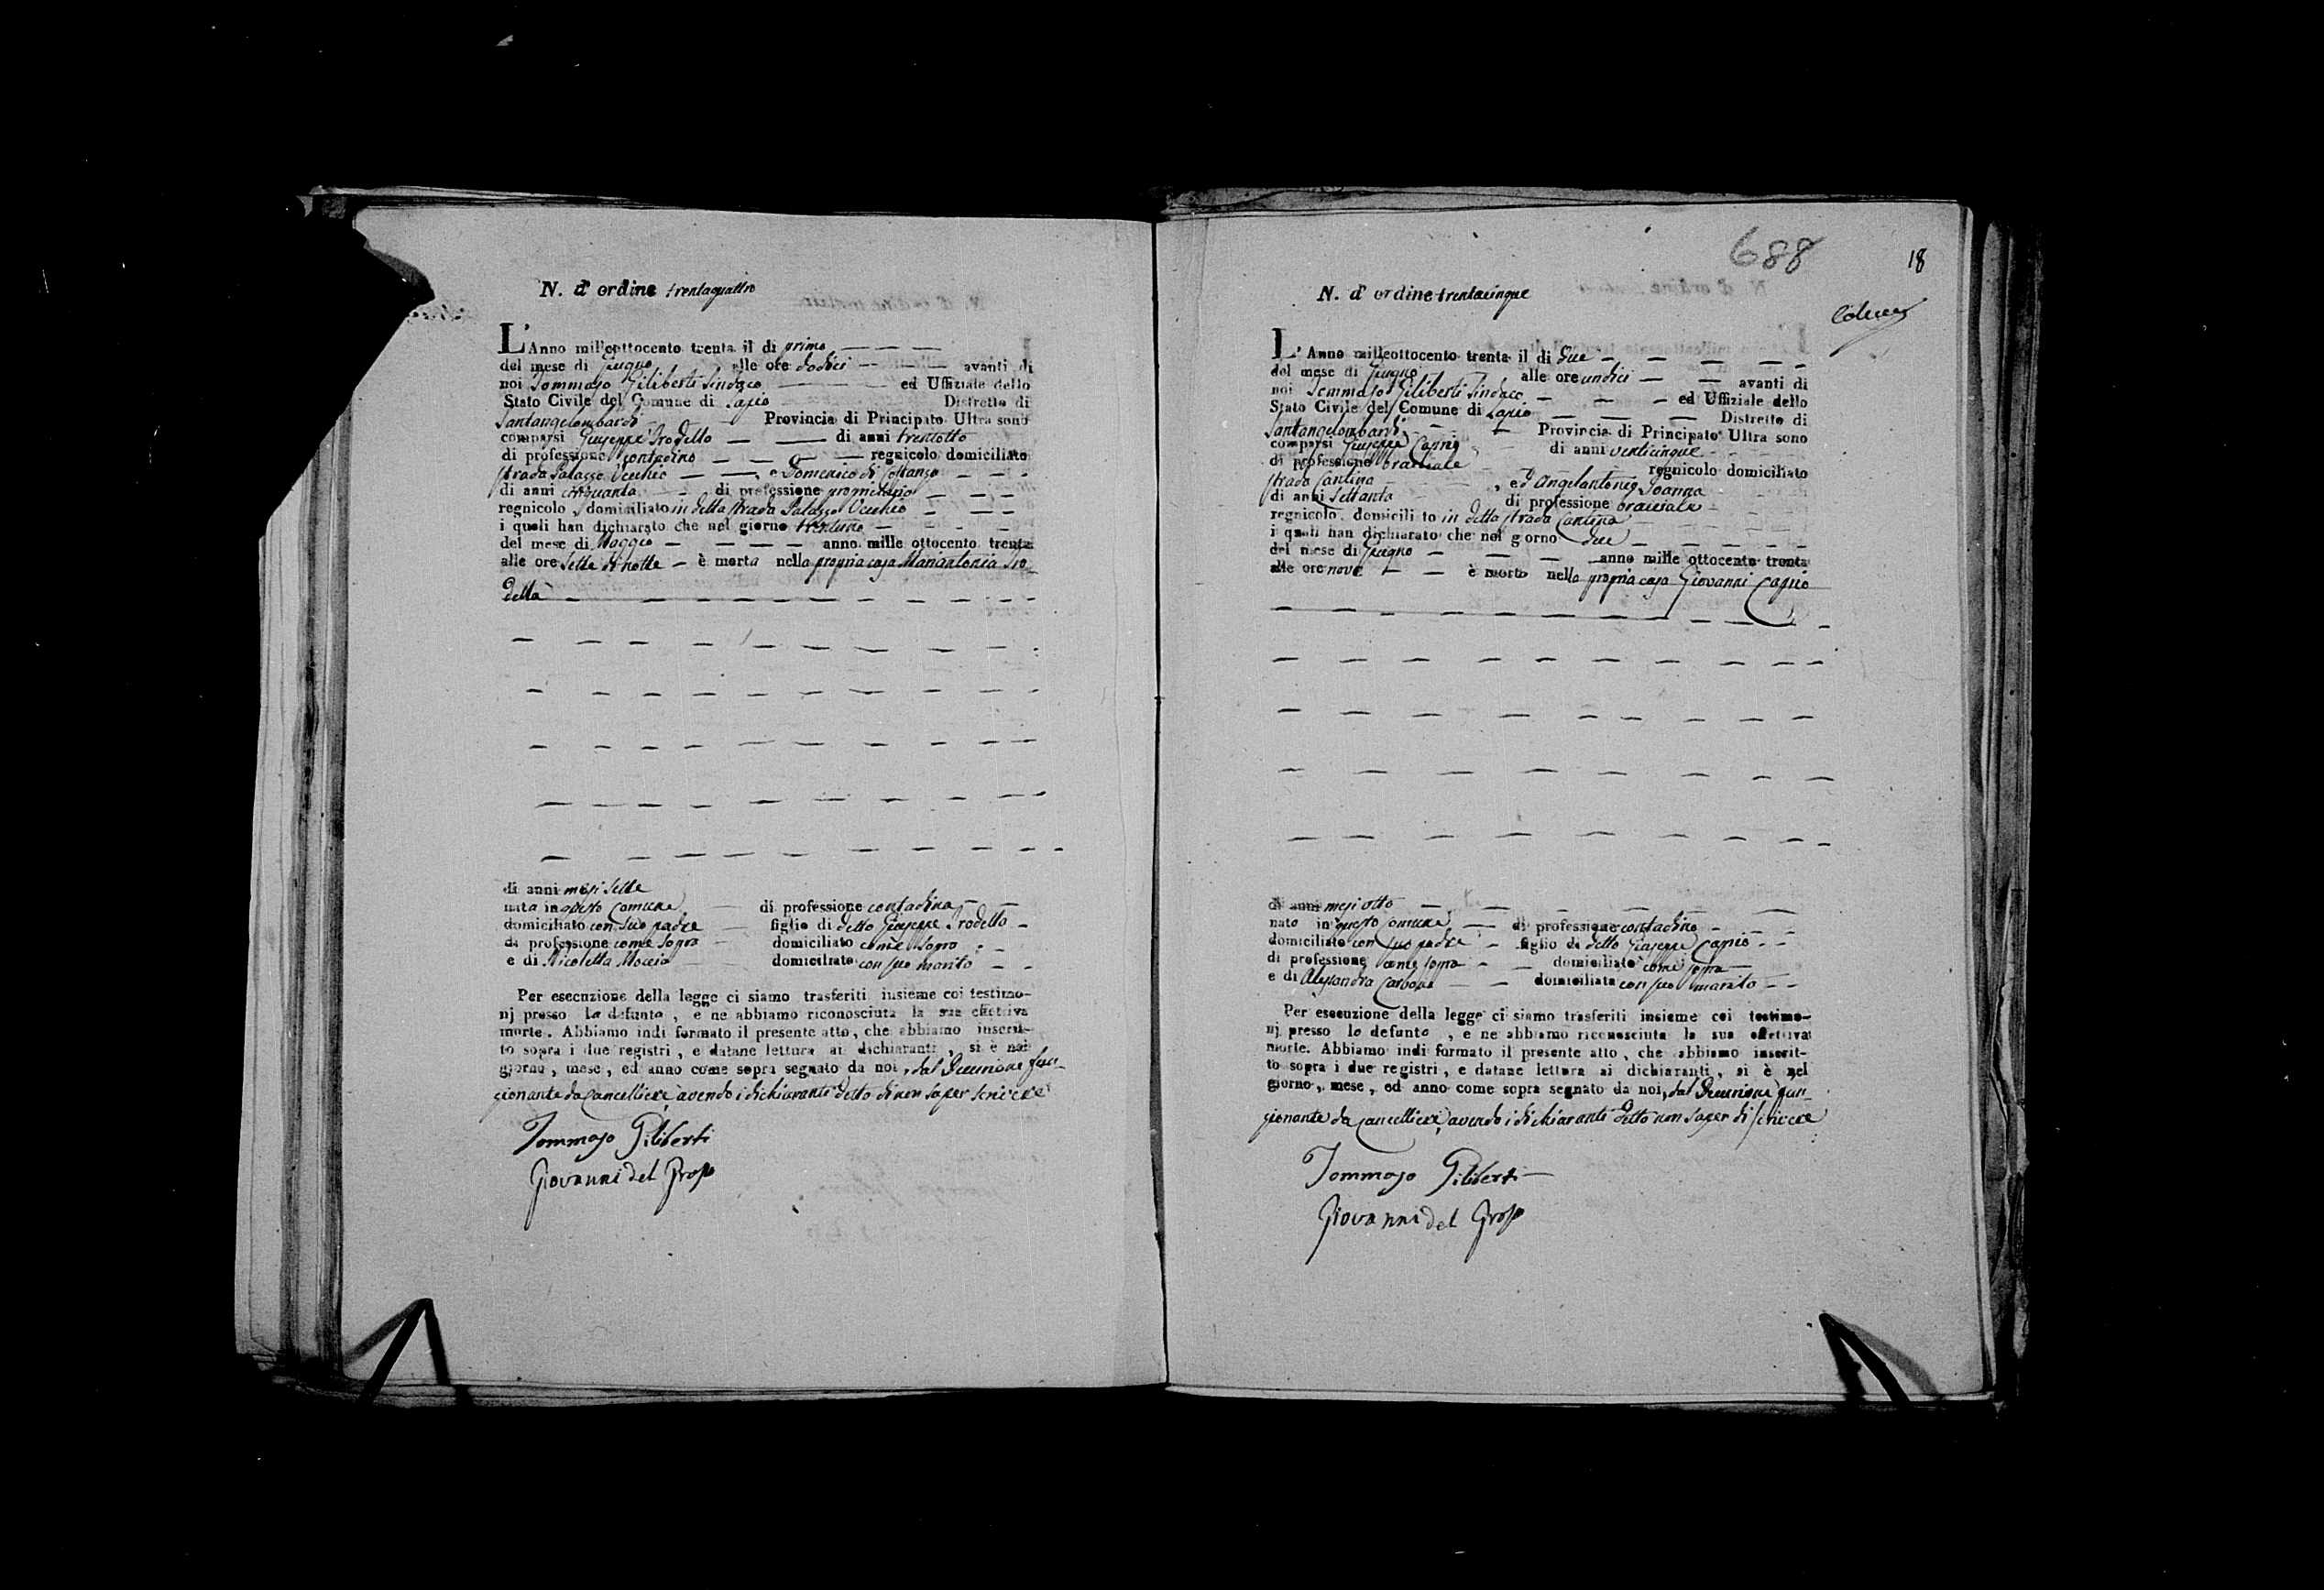 N. d'ordine trentaquattro
L'Anno milleottocento trenta il di primo
del mese di Giugno alle ore dodici avanti di
noi Tommaso Giliberti Sindaco ed Uffiziale dello
Stato Civile del Comune di Lapio Distretto di
Santangelombardi Provincia di Principato Ultra sono
comparsi Giuseppe Trodello di anni trentotto
di professione contadino regnicolo domiciliato
strada Palazzo Vecchio e Domenico di Costanzo
di anni cinquanta di professione proprietario
regnicolo, domiciliato in detta strada Palazzo Vecchio
i quali han dichiarato che nel giorno trentuno
del mese di Maggio anno mille ottocento trenta
alle ore sette di notte è morta nella propria casa Mariantonia Tro-
della
di anni mesi sette
nata in questo Comune di professione contadina
domiciliato con suo padre figlio di detto Giuseppe Trodello
di professione come sopra domiciliato come sopra
e di Nicoletta Moccia domiciliato con suo marito
Per esecuzione della legge ci siamo trasferiti insieme coi testimo-
nj presso la defunta, e ne abbiamo riconosciuta la sua effettiva
morte. Abbiamo indi formato il presente atto, che abbiamo inscrit-
to sopra i due registri, e datane lettura ai dichiaranti, si è nel
giorno, mese, ed anno come sopra segnato da noi, dal Decurione fun-
zionante da Cancelliere, avendo i dichiaranti detto di non saper scrivere
Tommaso Giliberti
Giovanni del Grosso
688
18
N. d'ordine trentacinque
L'Anno milleottocento trenta il di due
del mese di Giugno alle ore undici avanti di
noi Tommaso Giliberti Sindaco ed Uffiziale dello
Stato Civile del Comune di Lapio Distretto di
Santangelombardi Provincia di Principato Ultra sono
comparsi Giuseppe Caprio di anni venticinque
di professione bracciale regnicolo domiciliato
strada Cantina, ed Angelantonio Joanna
di anni settanta di professione bracciale
regnicolo, domiciliato in detta strada Cantina
i quali han dichiarato che nel giorno due
del mese di Giugno anno mille ottocento trenta
alle ore nove è morto nella propria casa Giovanni Caprio
di anni mesi otto
nato in questo Comune di professione contadino
domiciliato con suo padre figlio di detto Giuseppe Caprio
di professione come sopra domiciliato come sopra
e di Alessandra Carbone domiciliata con suo marito
Per esecuzione della legge ci siamo trasferiti insieme coi testimo-
nj presso lo defunto, e ne abbiamo riconosciuta la sua effettiva
morte. Abbiamo indi formato il presente atto, che abbiamo inscrit-
to sopra i due registri, e datane lettura ai dichiaranti, si è nel
giorno, mese, ed anno come sopra segnato da noi, dal Decurione fun-
zionante da Cancelliere, avendo i dichiaranti detto non saper di scrivere
Tommaso Giliberti
Giovanni del Grosso